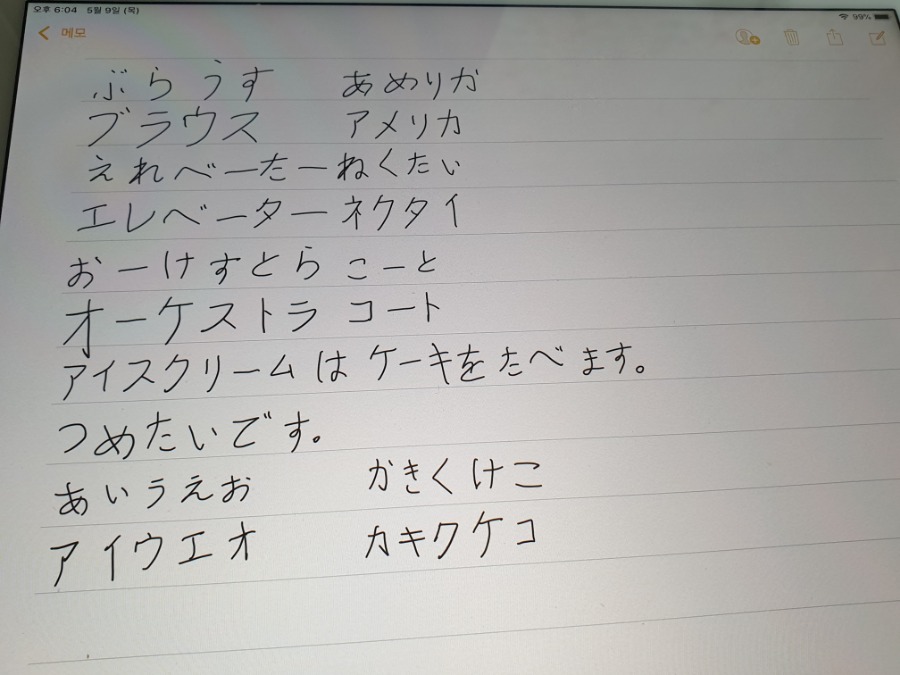 오후 6:04 5월 9일 (목) 99%
메모
ぶらうす あめりか
ブラウス アメリカ
えれべーたーねくたい
エレベーター ネクタイ
おーけすとら こーと
オーケストラ コート
アイスクリームは ケーキを たべます。
つめたいです。
あいうえお かきくけこ
アイウエオ カキクケコ